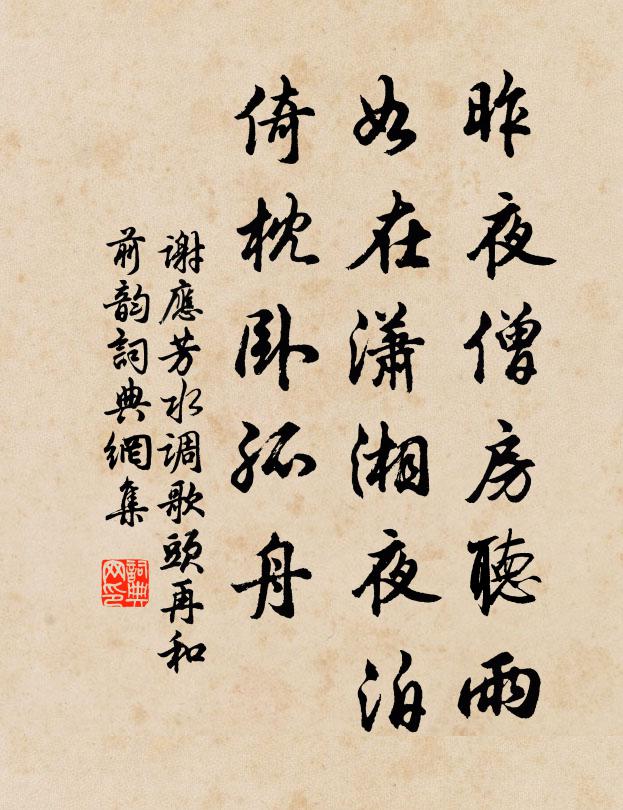 昨夜僧房聽雨
如在瀟湘夜泊
倚枕卧孤舟
謝應芳水调歌頭再和
前韵詞典網集
詞典
网印